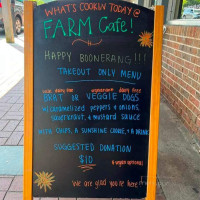 WHAT'S COOKIN' TODAY @
FARM Cafe!
HAPPY BOONERANG!!!
TAKEOUT ONLY MENU
BRAT OR VEGGIE DOGS
w/ caramelized peppers & onions,
sauerkraut, & mustard sauce
WITH CHIPS, A SUNSHINE COOKIE, & A DRINK
SUGGESTED DONATION
$10
We are glad you're here!